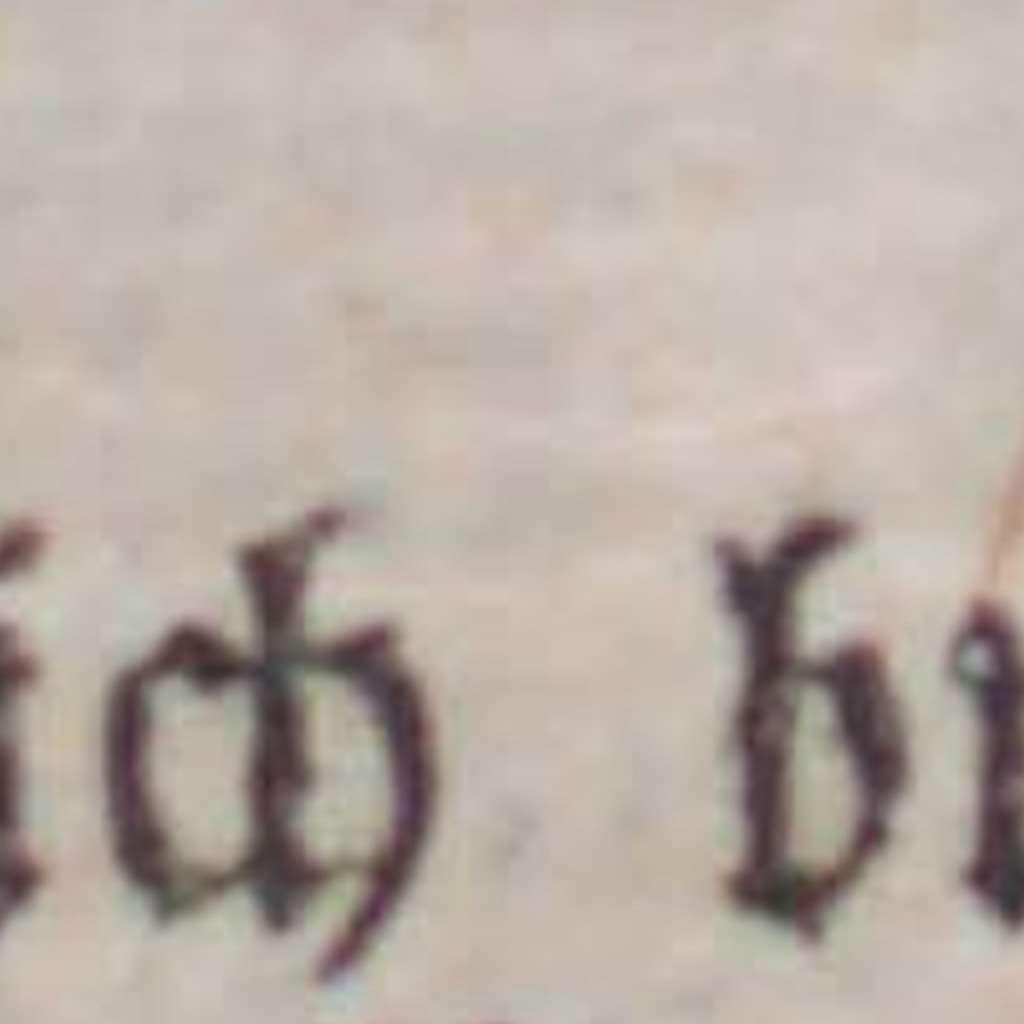 ich bi